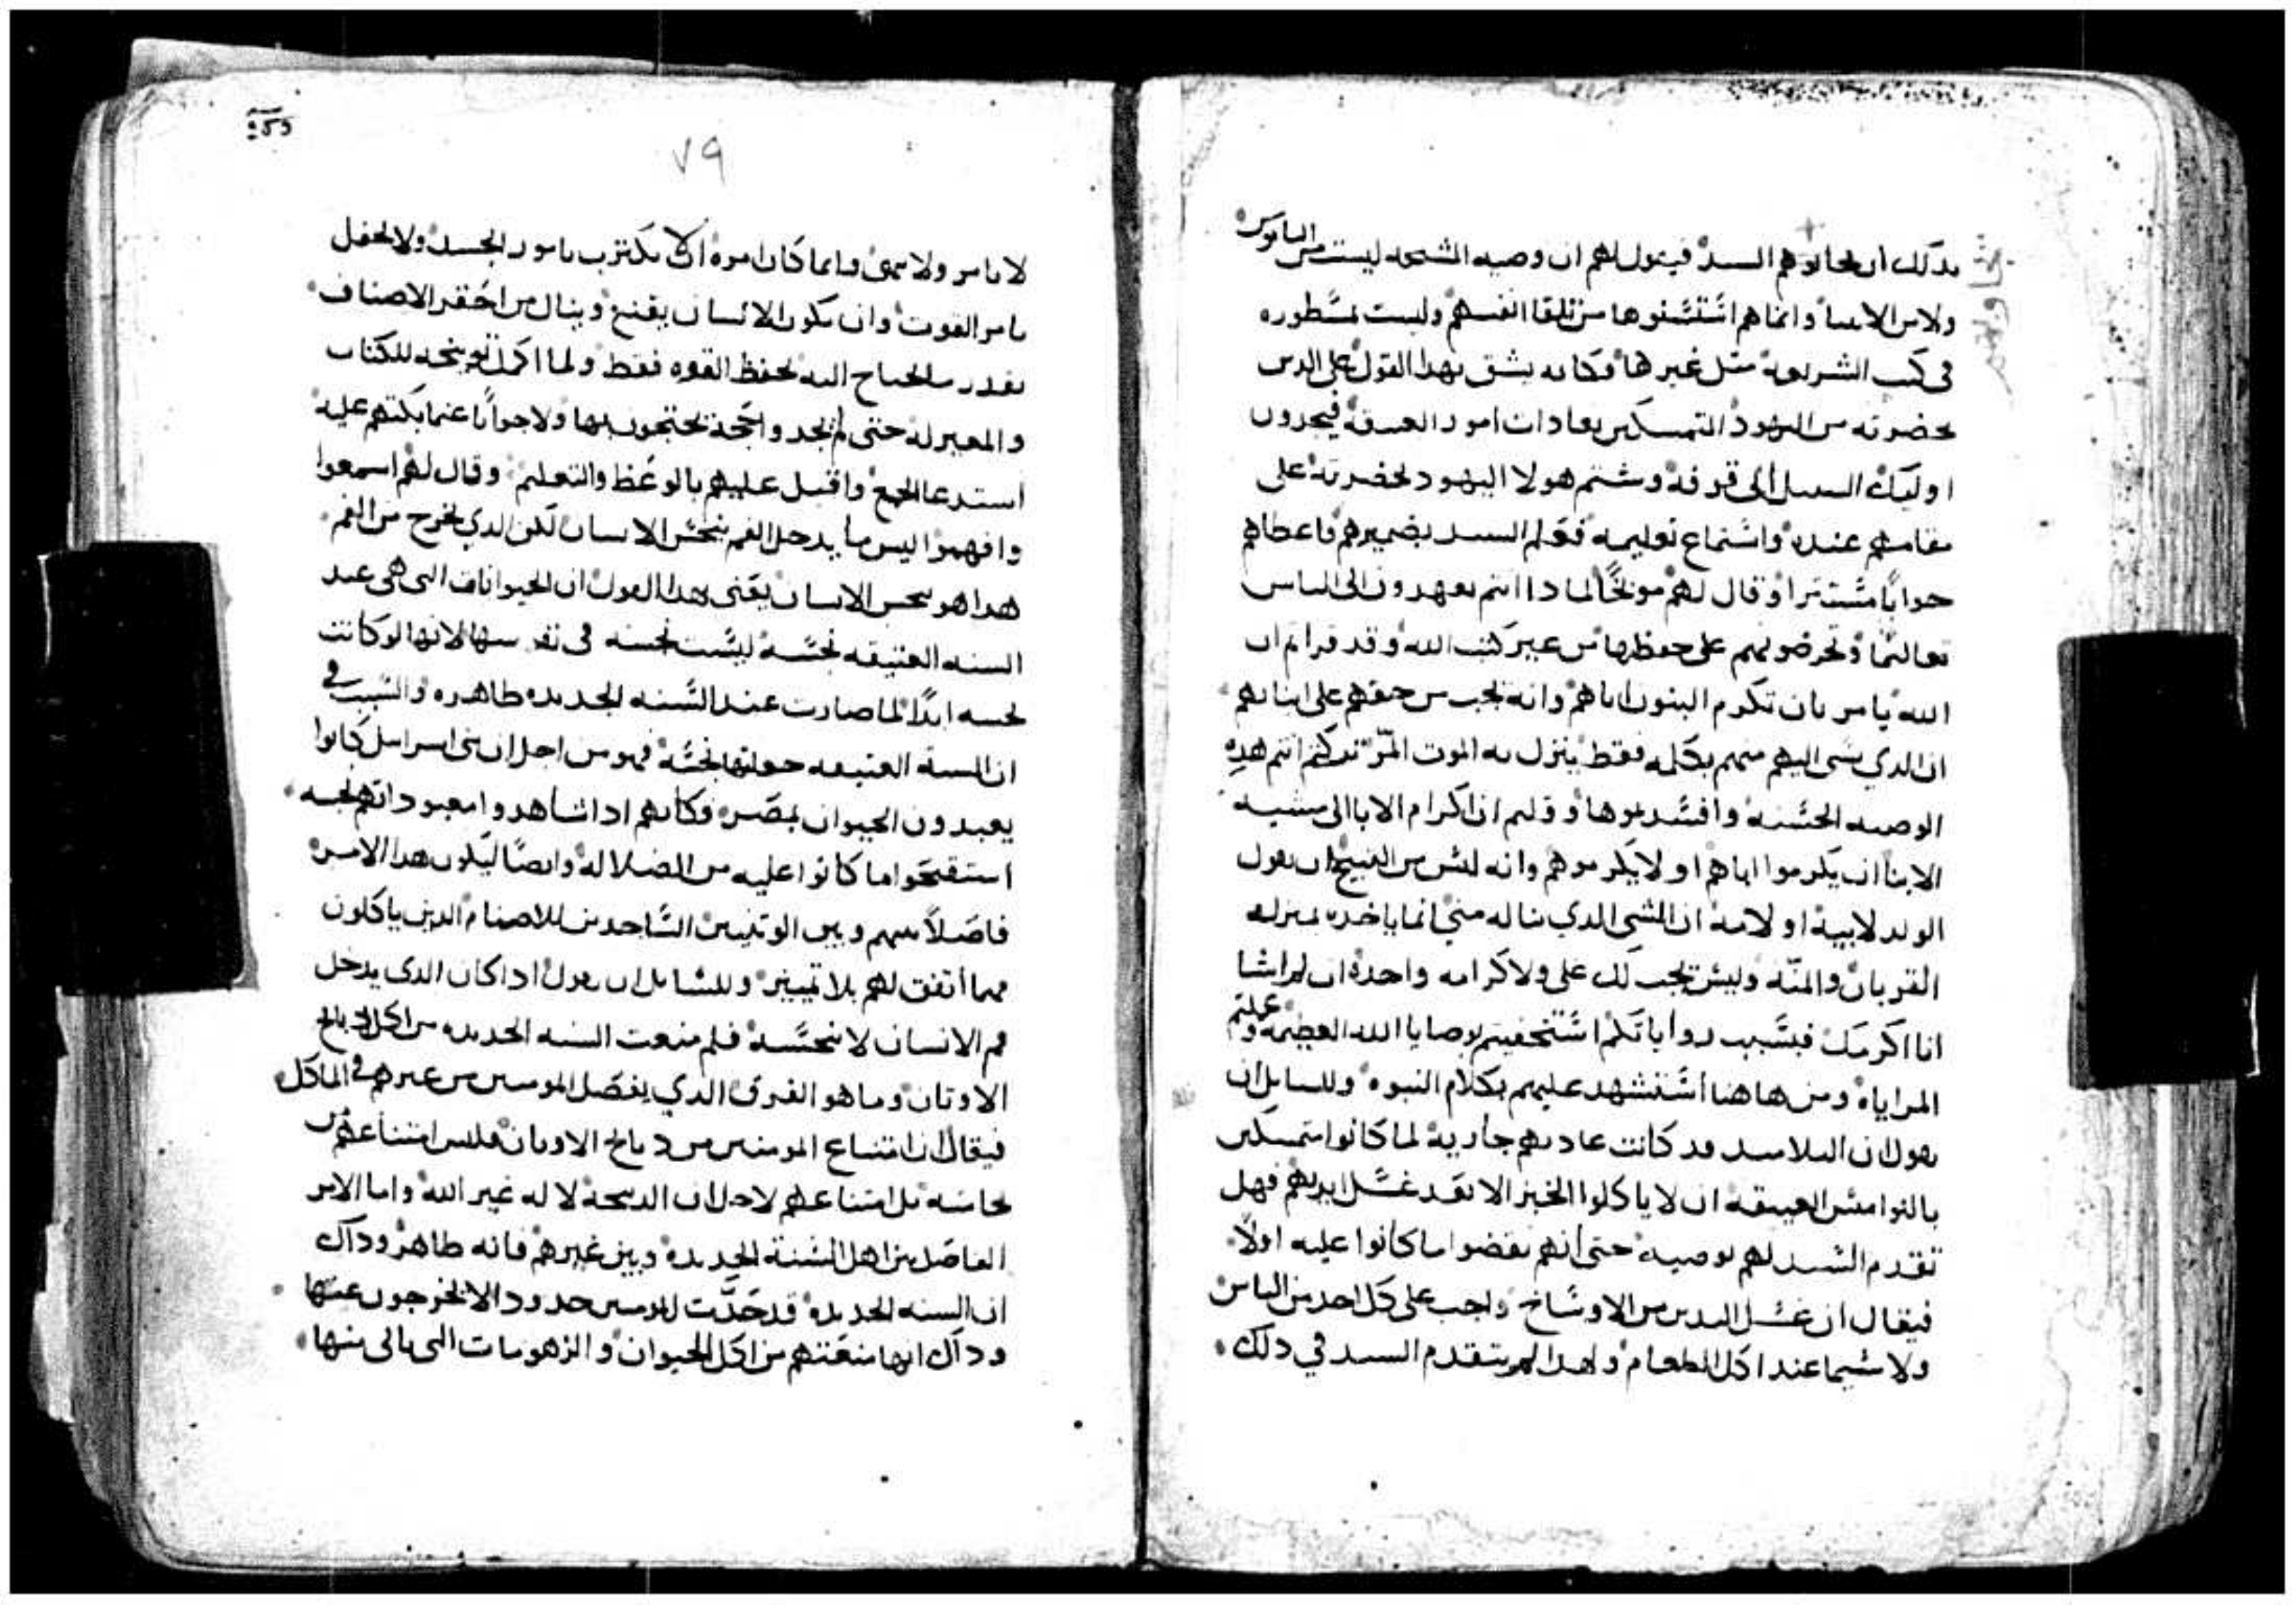 بدلك ان لحانوهم السيد فيقول لهم ان وصيه الشيخه ليست من الناموس
ولا من الانبيا وانما هم استسنوها من تلقا انفسهم وليست مسطوره
في كتب الشريعه مثل غيرها فكانه يشق بهدا القول على الدين
بحضرته من اليهود المتمسكين بعادات امور العتيقه فيجدون
اوليك السبيل الى قرفه وشتم هولا اليهود لحضرته على
مقامهم عنده واستماع تعليمه فعلم السيد بضميرهم فاعطاهم
جوابا مستترا وقال لهم موبخا لمادا انتم تعهدون الى الناس
تعاليما وتحرضونهم على حفظها من غير كتب الله وقد قراتم ان
الله يامر بان تكرم البنون اباهم وانه يجب من حقهم على ابنايهم
ان الدي يسى اليهم منهم بكلمه فقط ينزل به الموت المر تركتم انتم هده
الوصيه الحسنه وافسدتموها وقلتم ان اكرام الابا الى مشيه
الابنا ان يكرموا اباهم او لا يكرموهم وانه ليس من القبيح ان يقول
الولد لابيه او لامه ان الشي الدي تناله مني انما ياخده بمنزله
القربان والمنه وليس يجب لك على ولا كرامه واحده ان لم اشا
انا اكرمك فبسبب رواياتكم استخفيتم بوصايا الله العظيمه وعلمتم
المراياه ومن هاهنا استشهد عليهم بكلام النبوه وللسايل ان
يقول ان التلاميد قد كانت عادتهم جاريه لما كانوا متمسكين
بالنواميس العتيقه ان لا ياكلوا الخبز الا بعد غسل ايديهم فهل
تقدم السيد لهم بوصيه حتى انهم نقضوا ما كانوا عليه اولا
فيقال ان غسل اليدين من الاوساخ واجب على كل احد من الناس
ولا سيما عند اكل الطعام ولهدا لم يتقدم السيد في دلك
٧٩
لا يامر ولا ينهى وانما كان امره الا يكترب بامور الجسد ولا يحفل
بامر القوت وان يكون الانسان يقنع وينال من احقر الاصناف
بقدر ما يحتاج اليه لحفظ القوه فقط ولما اكمل توبيخه للكتاب
والمعتزله حتى لم يجدوا حجة يحتجون بها ولا جوابا عما بكتهم عليه
استدعا الجمع واقبل عليهم بالوعظ والتعليم وقال لهم اسمعوا
وافهموا ليس ما يدخل الفم ينجس الانسان لكن الدي يخرج من الفم
هدا هو ينجس الانسان يعنى بهدا القول ان الحيوانات التى هى عند
السنه العتيقه نجسه ليست نجسه في نفوسها لانها لو كانت
نجسه ابدا لما صارت عند السنه الجديده طاهره والسبب في
ان السنه العتيقه جعلتها نجسه فهو من اجل ان بنى اسرايل كانوا
يعبدون الحيوان بمصر فكانهم ادا شاهدوا معبوداتهم نجسه
استقبحوا ما كانوا عليه من الضلاله وايضا ليكون هدا الامر
فاصلا بينهم وبين الوتنيين الساجدين للاصنام الدين ياكلون
مهما اتفق لهم بلا تمييز وللسايل ان يقول ادا كان الدى يدخل
فم الانسان لا ينجسه فلم منعت السنه الجديده من اكل دبايح
الاوتان وما هو الفرق الدي يفصل المومنين من غيرهم في الماكل
فيقال ان امتناع المومنين من دبايح الاوتان فليس امتناعهم من
نجاسه بل امتناعهم لاجل ان الدبيحة لاله غير الله واما الامر
الفاصل بين اهل السنة الجديده وبين غيرهم فانه طاهر وداك
ان السنه الجديده قد حدت للمومنين حدود الا يخرجون عنها
وداك انها منعتهم من اكل الحيوان والزهومات التى ياتى منها